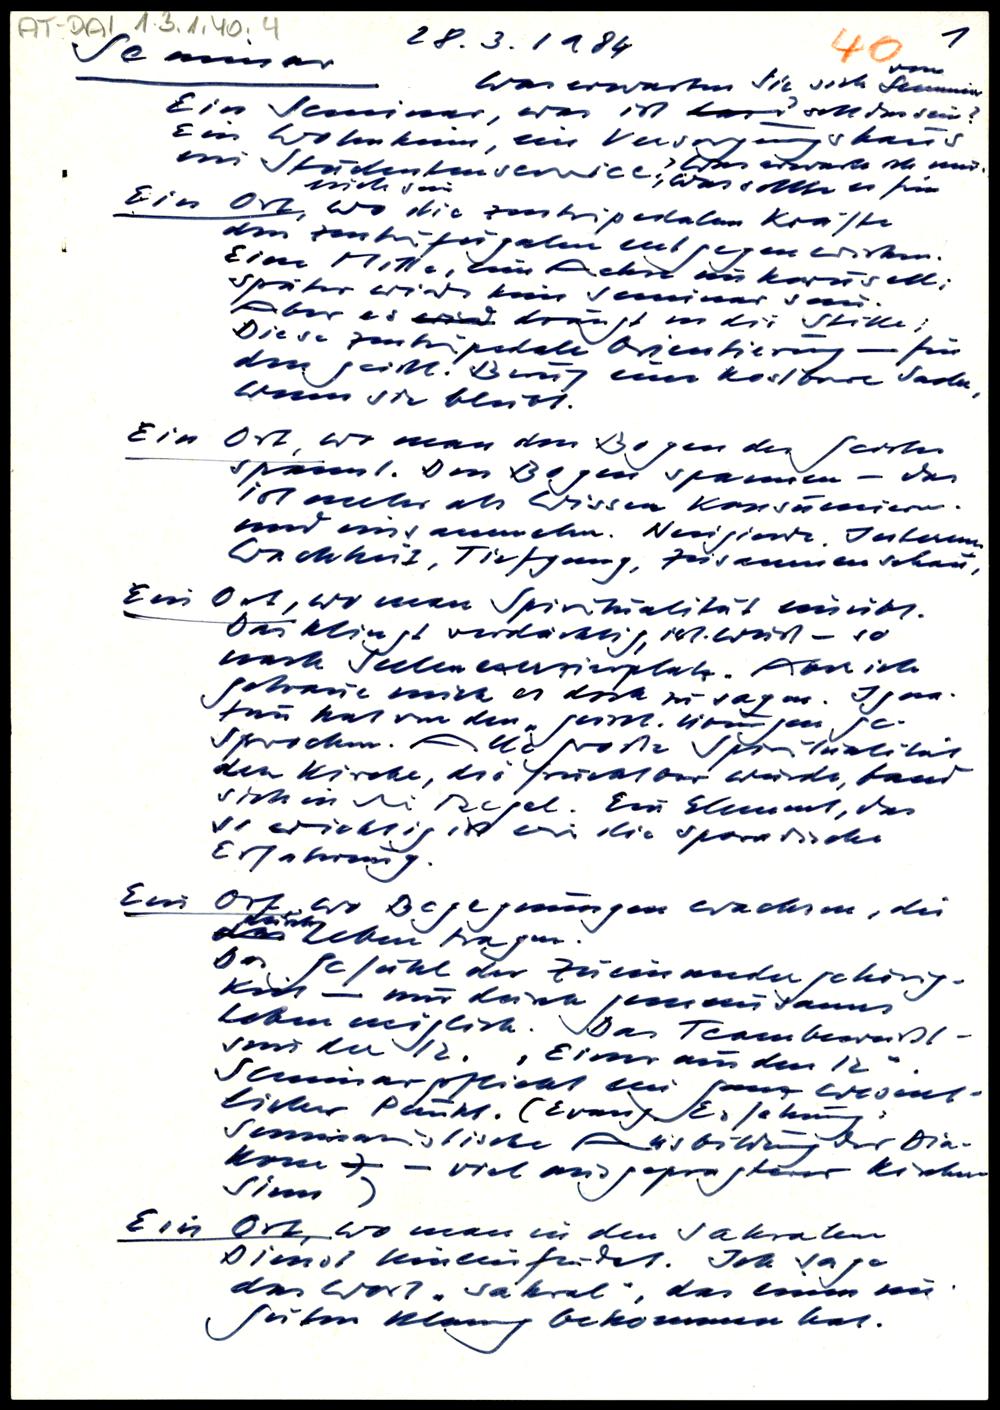 AT-DAI 1.3.1.40.4
28.3.1984
40
1
Seminar
Was erwarten Sie sich vom Seminar
Ein Seminar, was ist soll das sein?
Ein Wohnheim, ein Versorgungshaus
ein Studentenservice? Was erwarte ich mir.
Was sollte es für
mich sein
Ein Ort, wo die zentripedalen Kräfte
den zentrifugalen entgegenwirken.
Eine Mitte, eine Achse im Karussell;
später wird kein Seminar sein.
Aber es wird drängt in die Stille;
Diese zentripedale Orientierung – für
den geistl. Beruf eine kostbare Sache,
wenn sie bleibt.
Ein Ort, wo man den Bogen des Geistes
spannt. Den Bogen spannen – das
ist mehr als Wissen konsumieren
und einsammeln. Neugierde, Interesse,
Wachheit, Tiefgang, Zusammenschau,
Ein Ort, wo man Spiritualität einübt.
Das klingt verdächtig, ist wüst – so
nach Seelenexerzierplatz. Aber ich
getraue mich es doch zu sagen. Igna-
tius hat von den „geistl. Übungen" ge-
sprochen. Alle große Spiritualität
der Kirche, die fruchtbar wurde, band
sich in die Regel. Ein Element, das
so wichtig ist wie die sporadische
Erfahrung.
Ein Ort, wo Begegnungen wachsen, die
das durchs Leben tragen.
Das Gefühl der Zueinandergehörig-
keit – nur durch gemeinsames
Leben möglich. Das Teambewußt-
sein der 12. „Einer aus den 12".
Seminarpflicht ein ganz wesent-
licher Punkt. (Evang. Erfahrung:
Seminaristische Ausbildung der Dia-
kone – viel ausgeprägterer Kirchen
sinn)
Ein Ort, wo man in den sakralen
Dienst hineinfindet. Ich sage
das Wort „sakral", das einen un-
guten Klang bekommen hat.